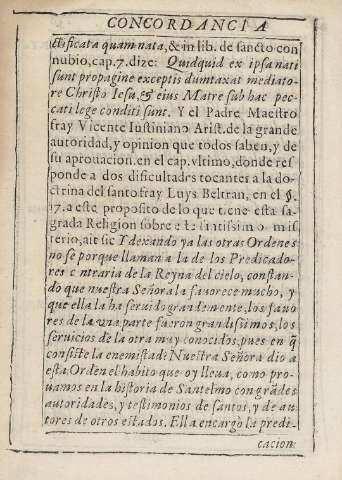 CONCORDANCIA
ctificata quam nata, & in lib. de sancto con
nubio, cap. 7. dize: Quidquid ex ipsa nati
sunt propagine exceptis dumtaxat mediato-
re Christo Iesu, & eius Matre sub hac pec-
cati lege conditi sunt. Y el Padre Maestro
fray Vicente Iustiniano Arist. de la grande
autoridad, y opinion que todos saben, y de
su aprouacion. en el cap. vltimo, donde res
ponde a dos dificultades tocantes a la do-
ctrina del santo fray Luys Beltran, en el §.
17. a este proposito de lo que tiene esta sa-
grada Religion sobre este santissimo mis-
terio, ait sic Y dexando ya las otras Ordenes
no se porque llaman a la de los Predicado-
res contraria de la Reyna del cielo, constan-
do que nuestra Señora la fauorece mucho, y
que ella la ha seruido grandemente, los fauo
res de la vna parte fueron grandissimos, los
seruicios de la otra muy conocidos, pues en q̃
consiste la enemistad? Nuestra Señora dio a
esta Orden el habito que oy lleua, como pro-
uamos en la historia de Santelmo con grãdes
autoridades, y testimonios de santos, y de au-
tores de otros estados. Ella encargò la predi-
cacion